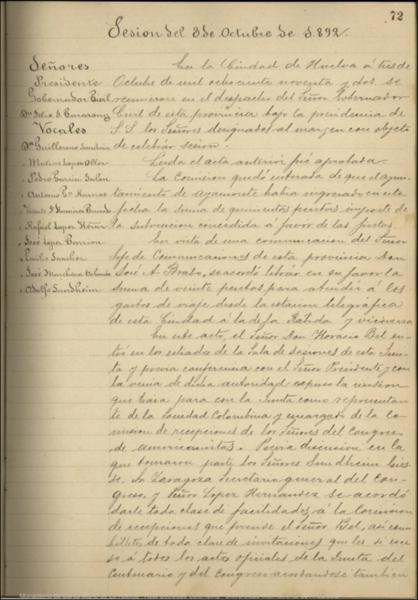 72
Sesion del 3 de Octubre de 1.892.
Señores
Presidente
Gobernador Civil
Vocales
Dn Guillermo Sundheim
" Pedro Garcia
" Rafael Lopez
" José Lopez
" Emilio
" José Marchena
" Adolfo Sundheim
En la Ciudad de Huelva á tres de
Octubre de mil ochociento noventa y dos se
reunieron en el despacho del Señor Gobernador
Civil de esta provincia bajo la presidencia de
S.S. los Señores designados al margen con objeto
de celebrar sesion.
Leida el acta anterior fué aprobada.
La Comision quedó enterada de que el ayun-
tamiento de Ayamonte habia ingresado en esta
fecha la suma de quinientas pesetas importe de
la subvencion concedida á favor de las fiestas.
En vista de una comunicacion del Señor
Jefe de Comunicaciones de esta provincia Don
José A. Bravo, se acordó librar en su favor la
suma de veinte pesetas para atender á los
gastos de viaje desde la estacion telegráfica
de esta Ciudad á la de la Rabida y viceversa
En este acto, el Señor Don Horacio Bel en-
tró en los estrados de la Sala de sesiones de esta Jun-
ta y previa conferencia con el Señor Presidente y con
la venia de dicha autoridad expuso la mision
que traia para con la Junta como representan-
te de la Sociedad Colombina y encargado de la Co-
mision de recepciones de los Señores del Congreso
de americanistas. Previa discusion en la
que tomaron parte los Señores Sundheim
Zaragoza Secretario general del Con-
greso, y Señor Lopez Hernandez se acordó
darle toda clase de facilidades á la Comision
de recepciones que preside el Señor Bel, asi como
billetes, de toda clase de invitaciones que les dé acce-
so á todos los actos oficiales de la Junta del
Centenario y del Congreso acordandose tambien